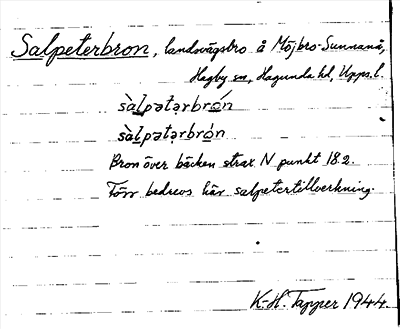 Salpeterbron, landsvägsbro å Möjbro-Sunnanå,
Hagby sn, Hagunda hd, Upps. l.
sàlpətərbrón
sàlpətərbròn
Bron över bäcken strax N punkt 18.2.
Förr bedrevs här salpetertillverkning.
K-H. Tapper 1944.